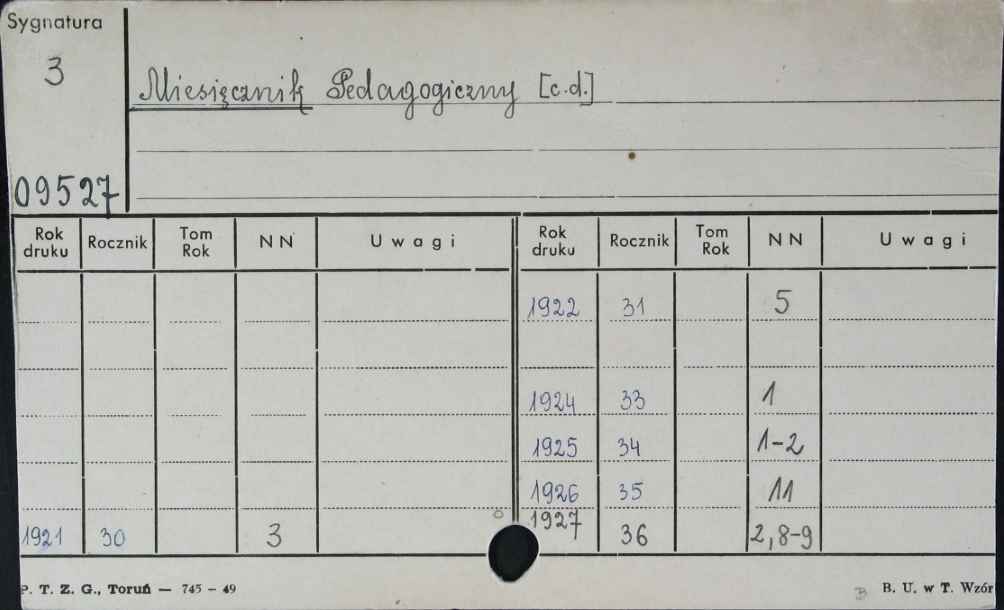 Sygnatura
3
Miesięcznik Pedagogiczny [c.d.]
09527
Rok druku Rocznik Tom Rok NN Uwagi Rok druku Rocznik Tom Rok NN Uwagi
1922 31 5
1924 33 1
1925 34 1-2
1926 35 11
1921 30 3 1927 36 2,8-9
P. T. Z. G., Toruń — 745 - 49 B. U. w T. Wzór